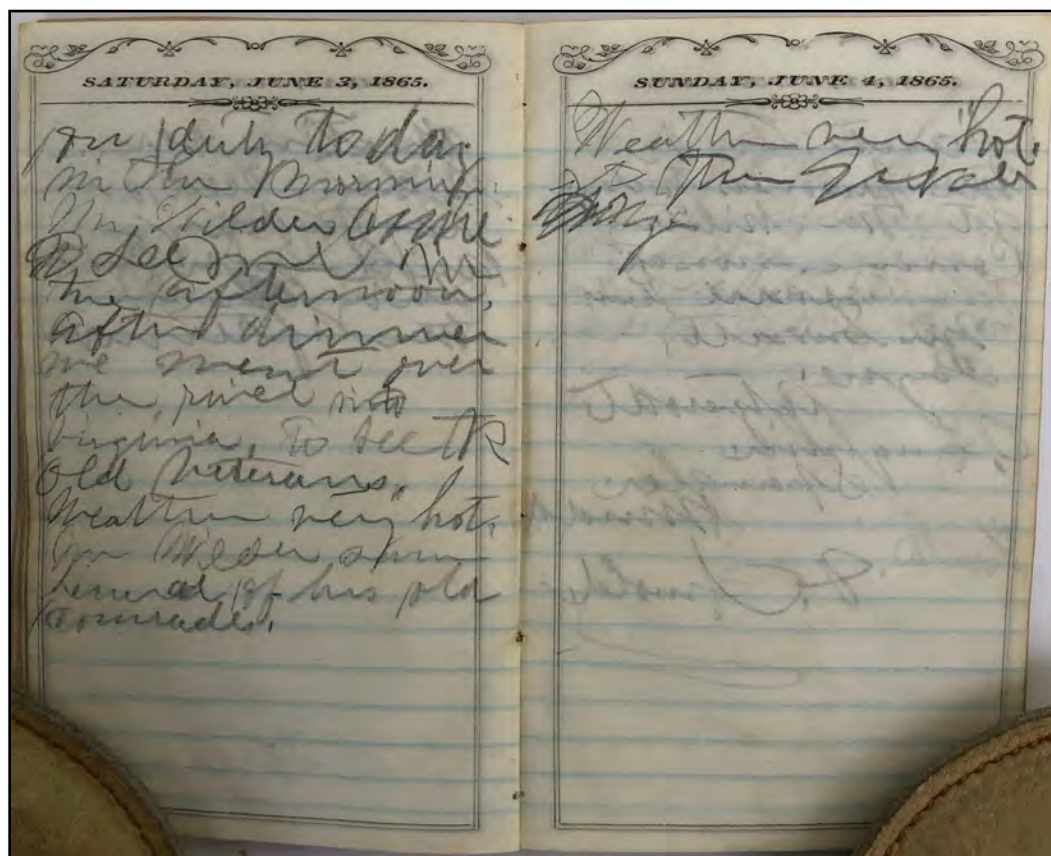 SATURDAY, JUNE 3, 1865.
on duty to day
in the Morning.
Mr Wilder Came
to see me in
the afternoon,
after dinner
we went over
the river into
Virginia, to see the
Old Veterans.
Weather very hot.
Mr Wilder saw
several of his old
comrades.
SUNDAY, JUNE 4, 1865.
Weather very hot.